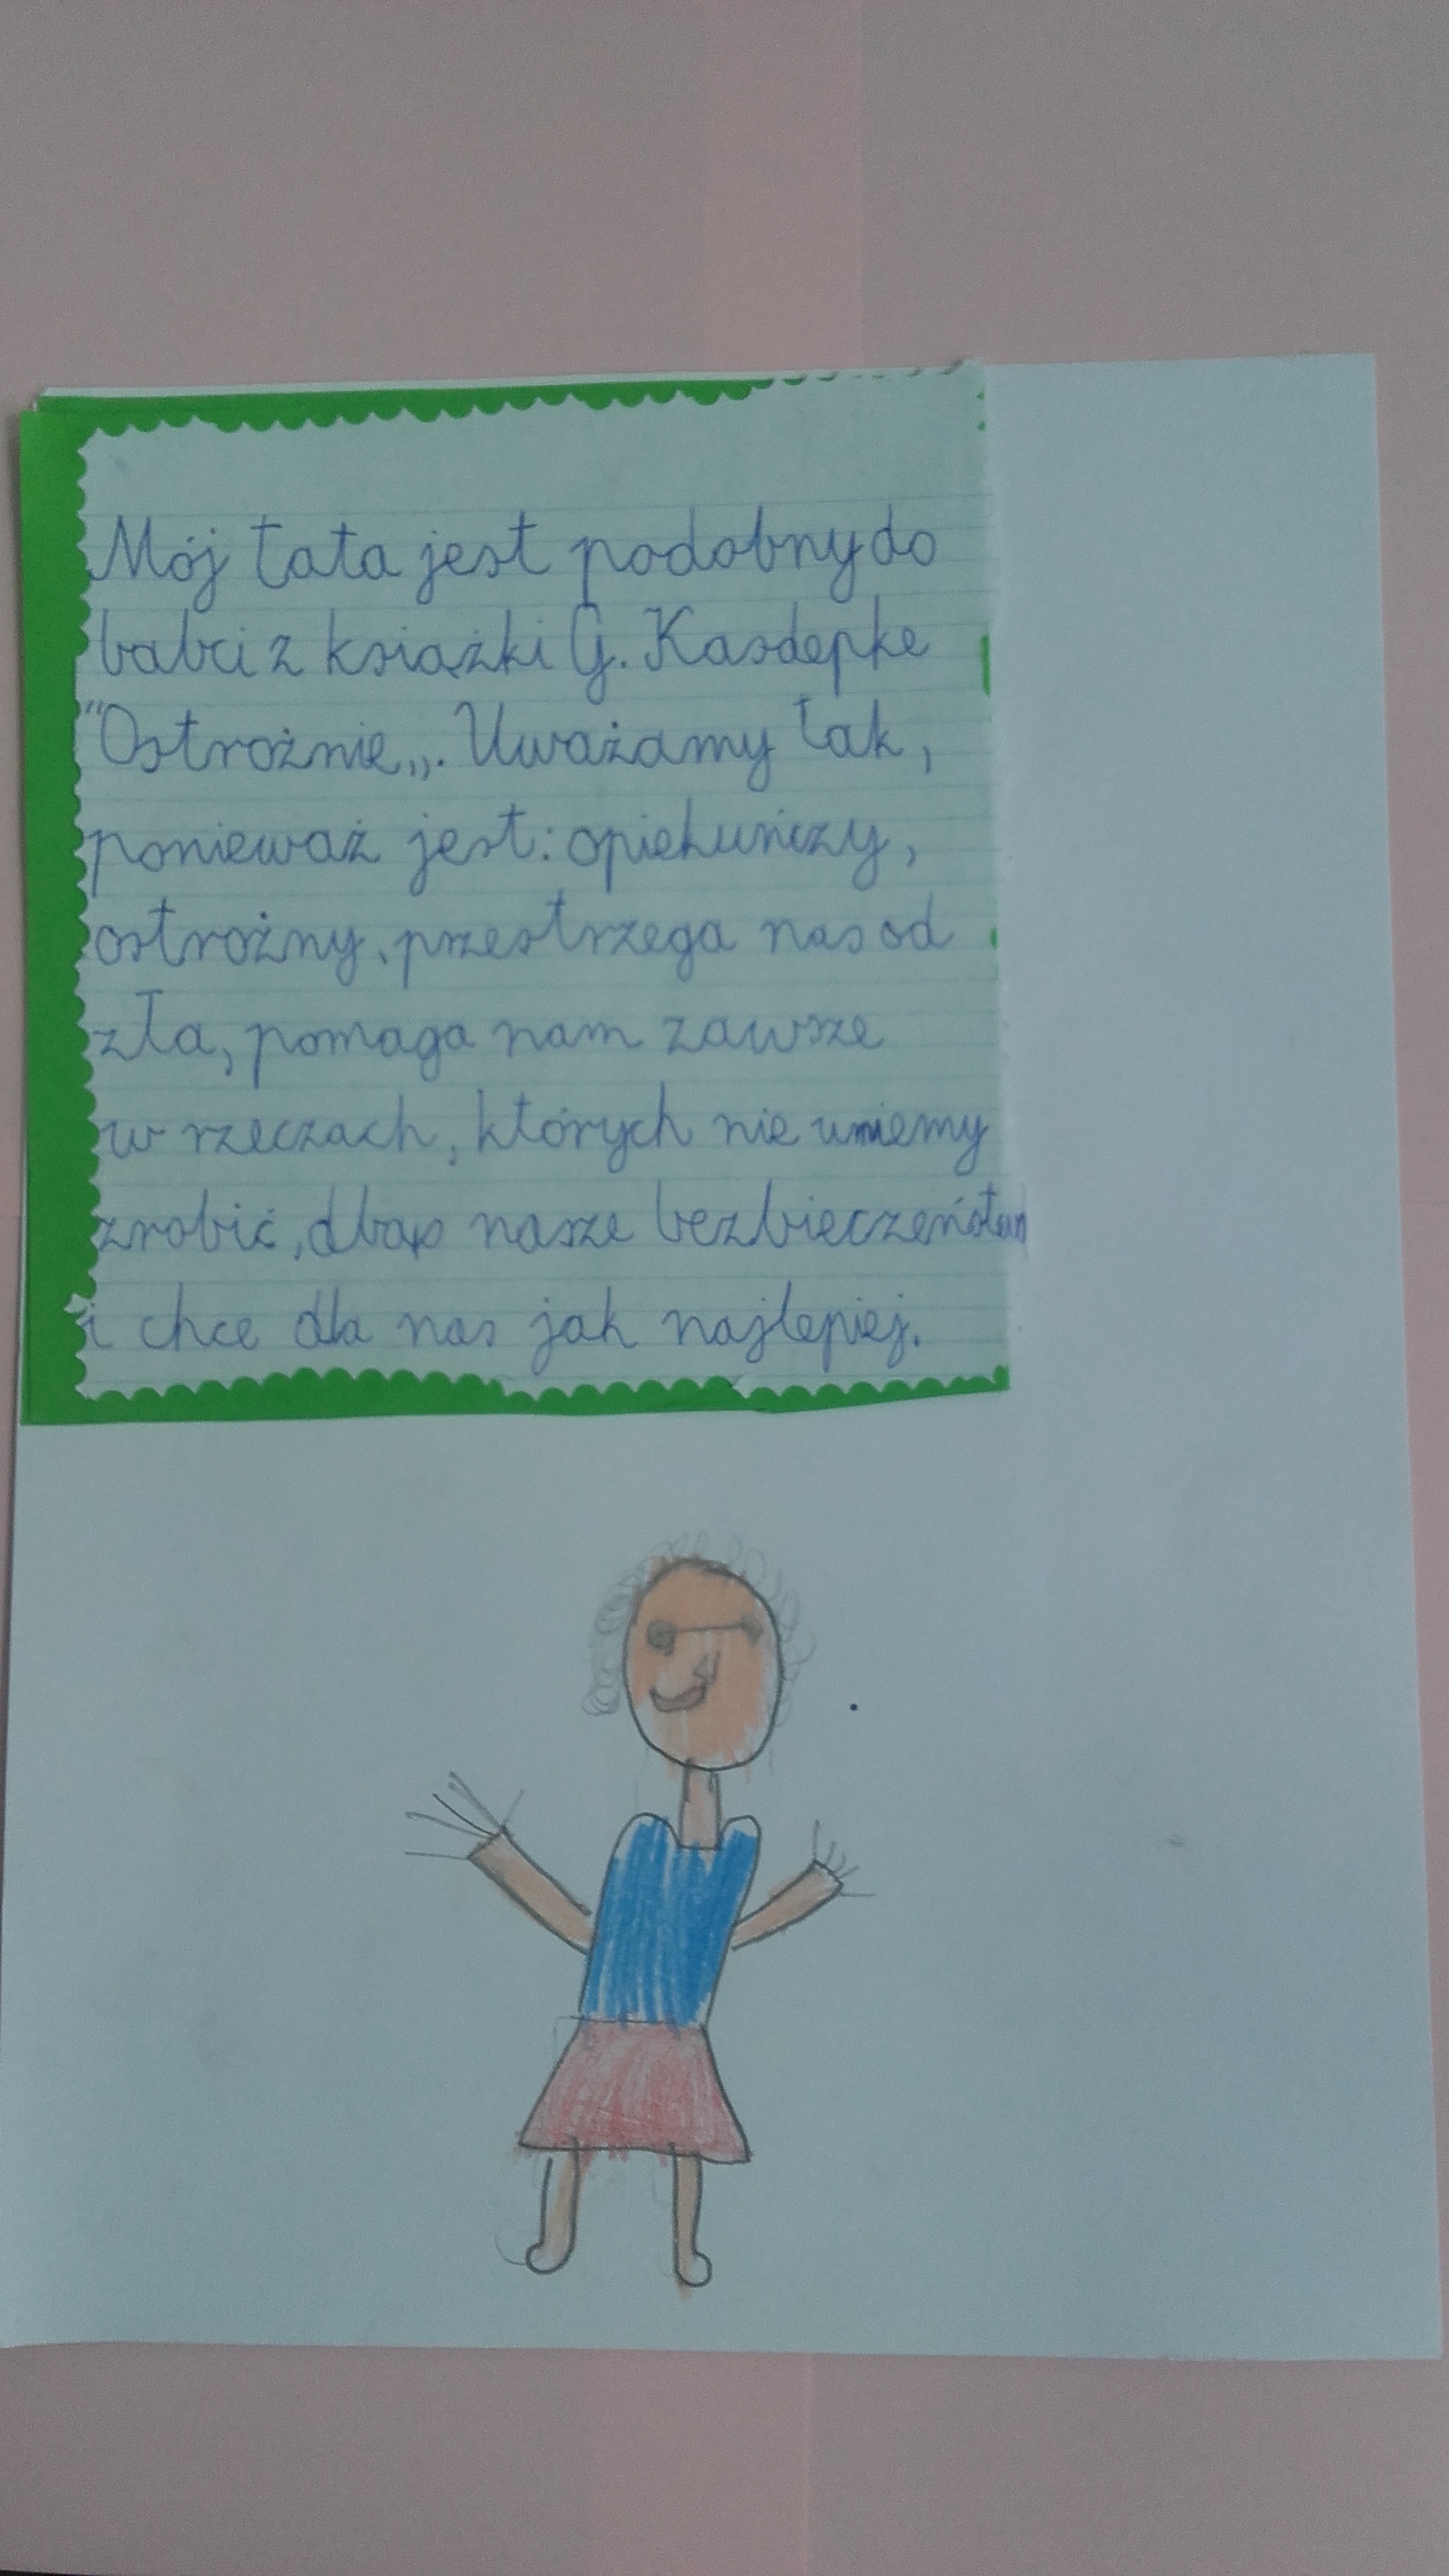 Mój tata jest podobny do
babci z książki G. Kasdepke
"Ostrożnie„. Uważamy tak,
ponieważ jest: opiekuńczy,
ostrożny, przestrzega nas od
zła, pomaga nam zawsze
w rzeczach, których nie umiemy
zrobić, nasze
i chce dla nas jak najlepiej.